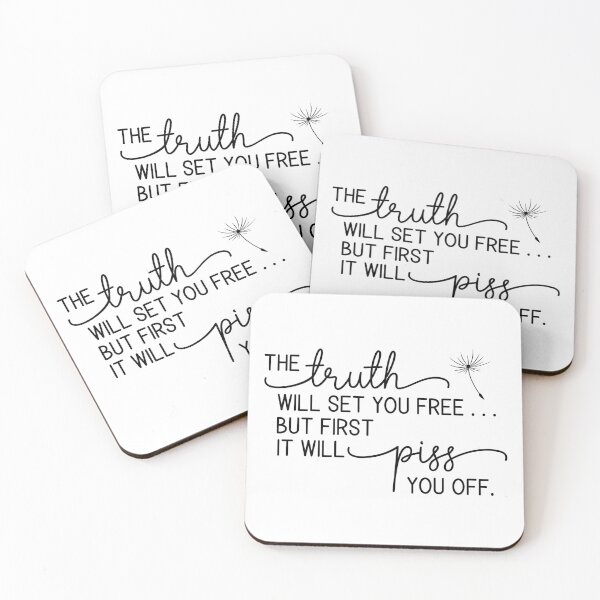 THE truth
WILL SET YOU FREE .
BUT
THE truth
WILL SET YOU FREE . . .
BUT FIRST
IT WILL piss
OFF.
THE truth
WILL SET YOU FREE . . .
BUT FIRST
IT WILL
THE truth
WILL SET YOU FREE . . .
BUT FIRST
IT WILL piss
YOU OFF.